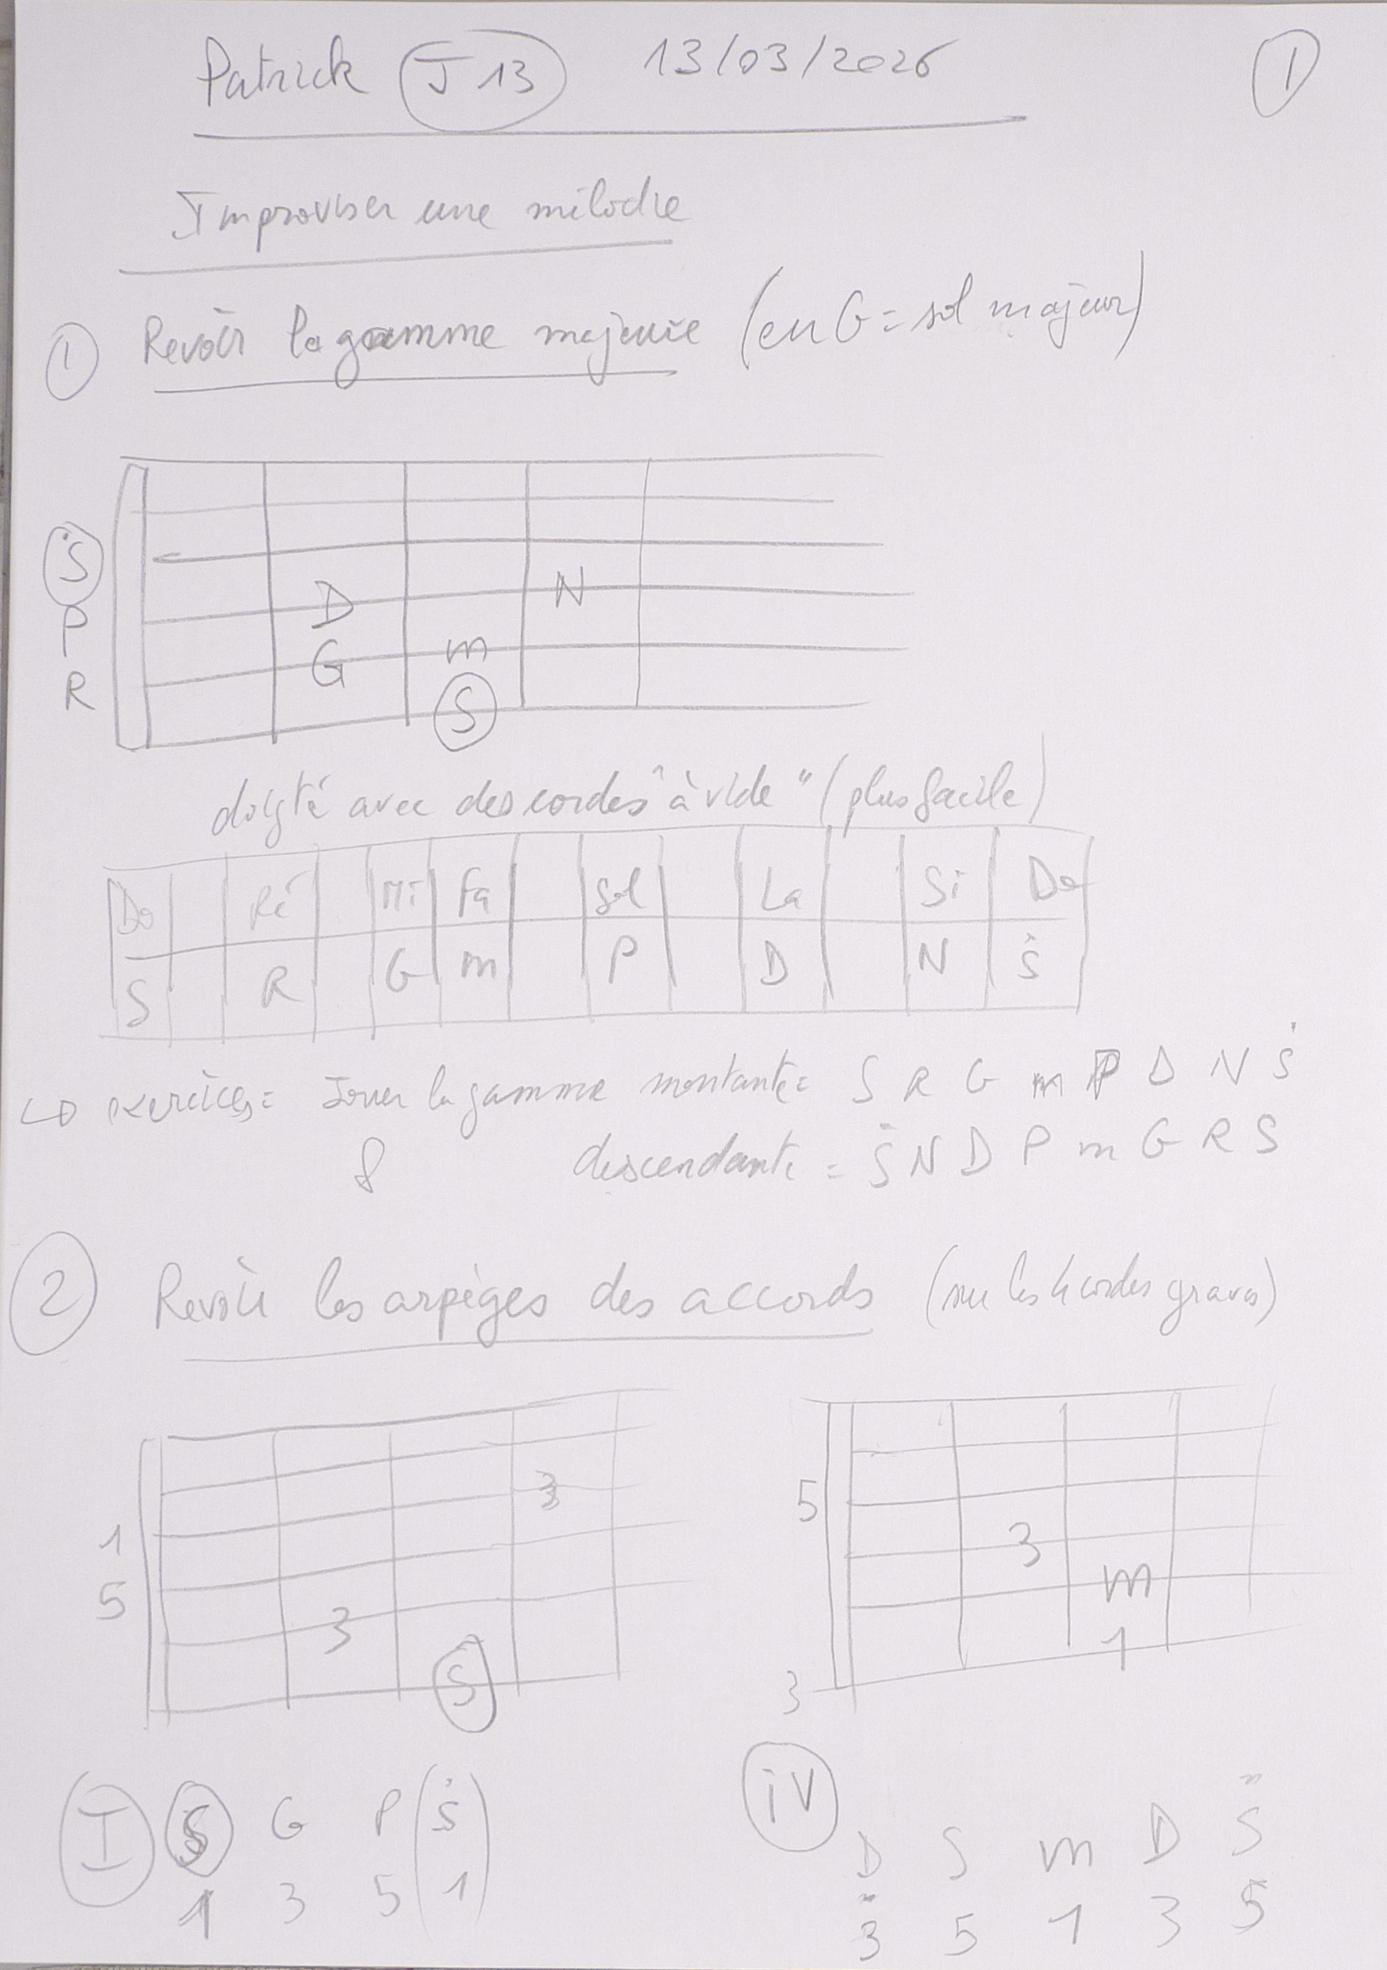 Patrick J13 13/03/2026 1
Improviser une mélodie
1 Revoir la gamme majeure (en G = sol majeur)
Ṡ D N
P G m
R S
doigté avec des cordes "à vide" (plus facile)
Do Ré Mi Fa Sol La Si Do
S R G m P D N Ṡ
↳ exercices = Jouer la gamme montante = S R G m P D N Ṡ
descendante = Ṡ N D P m G R S
2 Revoir les arpèges des accords (sur les 4 cordes graves)
3 5
1 3
5 3 m
S 1
3
I S G P (Ṡ) IV D S m D S̈
1 3 5 (1) 3 5 1 3 5